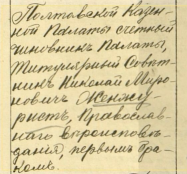 Полтавской Казен-
ной Палаты счетный
чиновник Палаты,
Титулярный Совѣт-
никъ Николай Миро-
новичъ Женжу-
ристъ, Православ-
наго вѣроисповѣ-
данія, первымъ бра-
комъ.